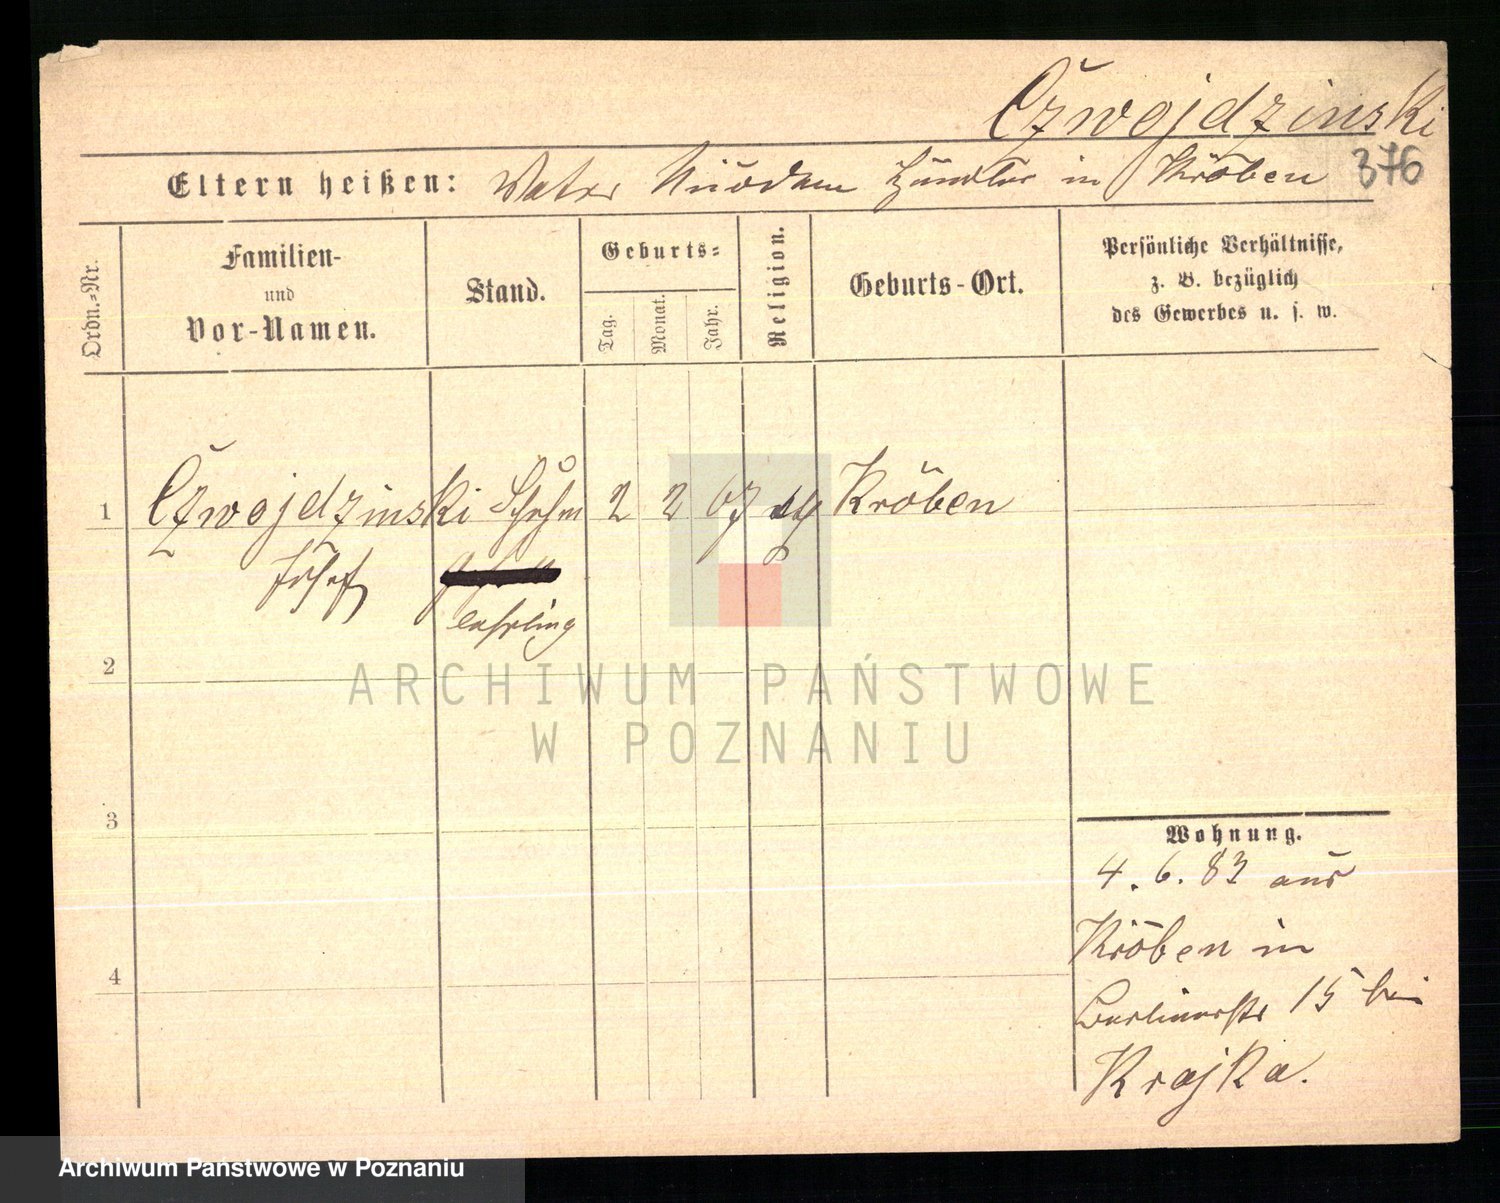 Czwojdzinski
376
Eltern heißen: Vater Händler in Kröben
Ordn.=Nr.
Familien-
und
Vor-Namen.
Stand.
Geburts=
Tag.
Monat.
Jahr.
Religion.
Geburts-Ort.
Persönliche Verhältnisse,
z. B. bezüglich
des Gewerbes u. s. w.
1 Czwojdzinski Schuhm 2 2 67 Kröben
Josef
lehrling
2
3
4
Wohnung.
4. 6. 83 aus
Kröben in
Berlinerstr 15 bei
Krajka.
ARCHIWUM PAŃSTWOWE
W POZNANIU
Archiwum Państwowe w Poznaniu